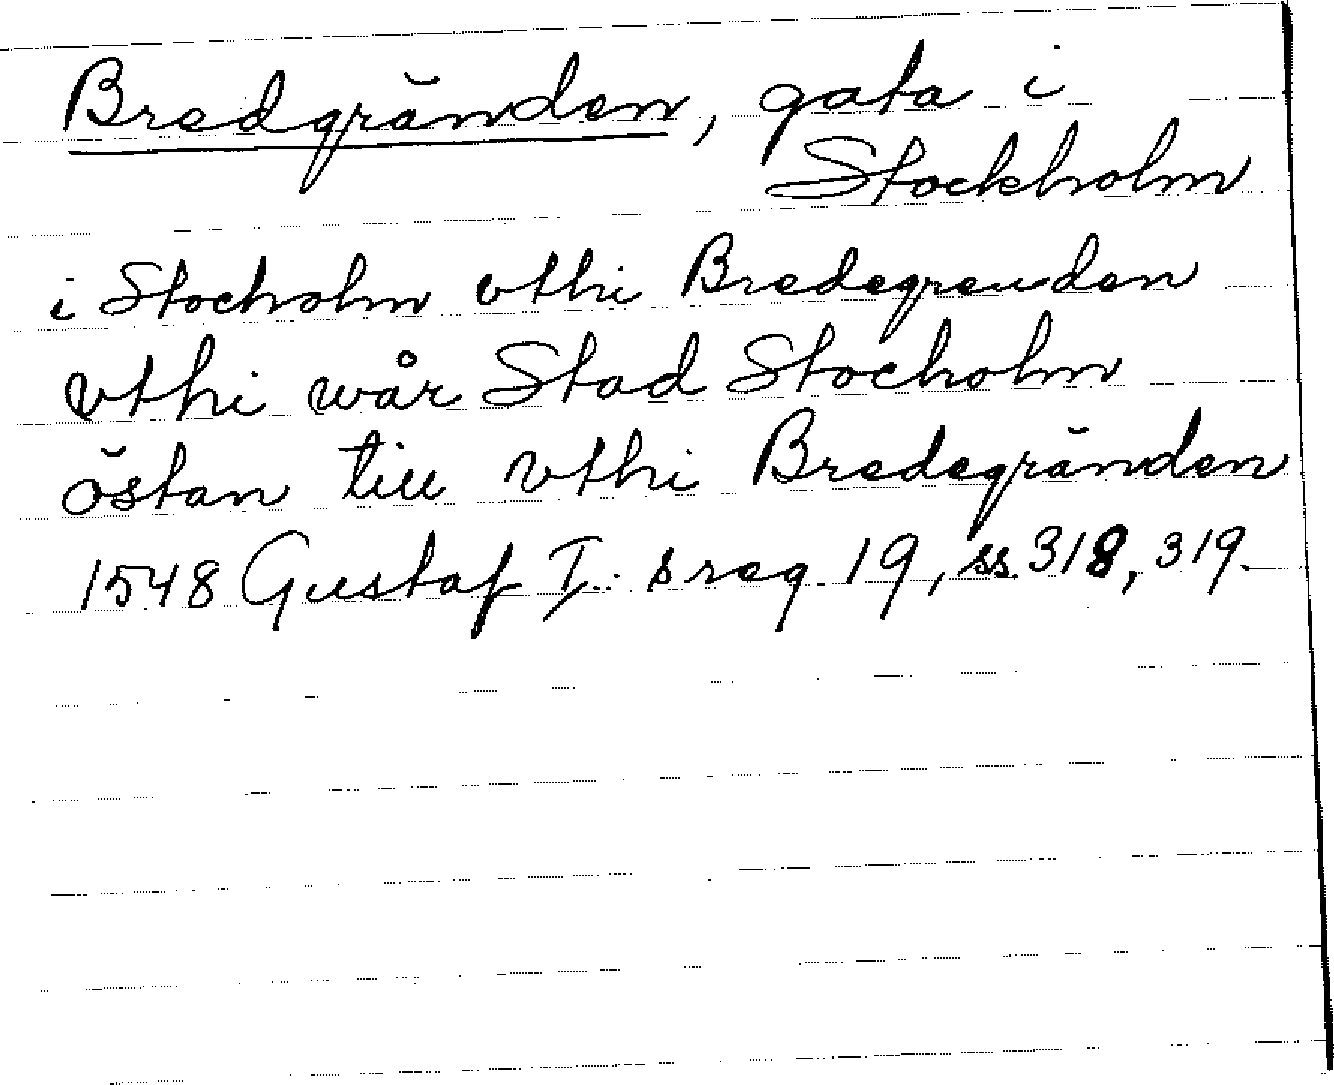 Bredgränden, gata i
Stockholm
i Stocholm vthi Bredegrenden
vthi wår Stad Stocholm
östan till vthi Bredegränden
1548 Gustaf I:s reg 19, ss. 318, 319.